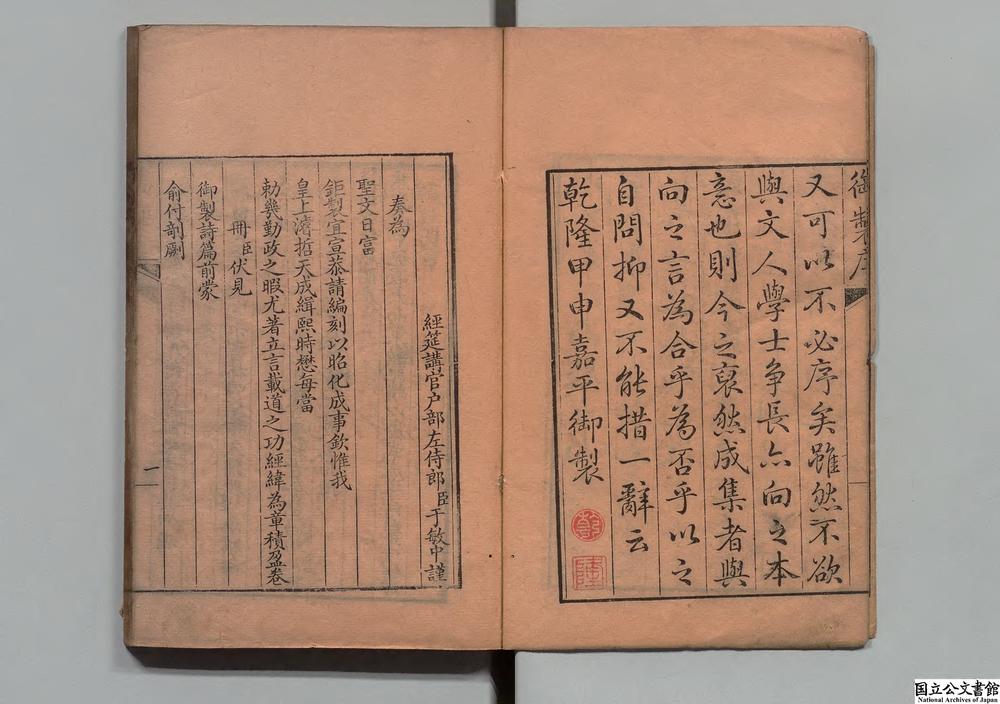 御製序
又可以不必序矣雖然不欲
與文人學士争長亦向之本
意也則今之裒然成集者與
向之言為合乎為否乎以之
自問抑又不能措一辭云
乾隆甲申嘉平御製
乾
隆
經筵講官户部左侍郎臣于敏中謹
奏為
聖文日富
鉅製宜宣恭請編刻以昭化成事欽惟我
皇上濬哲天成緝熙時懋每當
勅幾勤政之暇尤著立言載道之功經緯為章積盈卷
冊臣伏見
御製詩篇前蒙
俞付剞劂
一
国立公文書館
National Archives of Japan